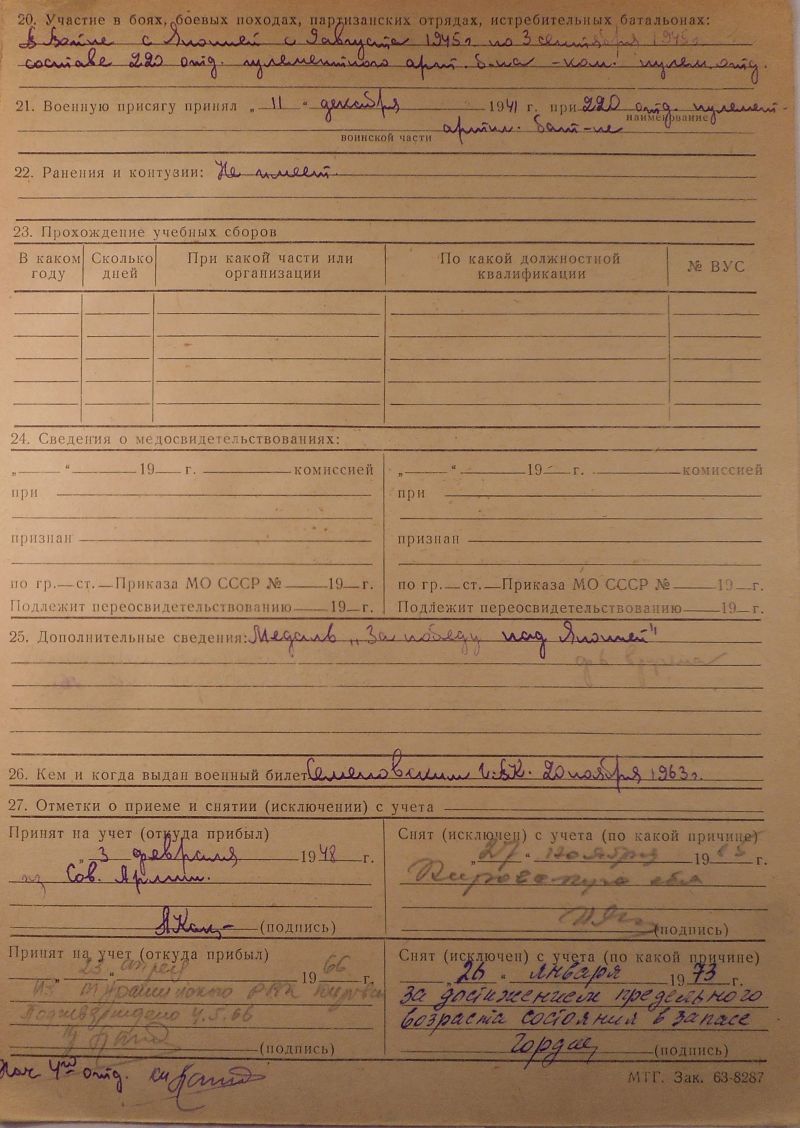 20. Участие в боях, боевых походах, партизанских отрядах, истребительных батальонах:
В войне с Японией с 9 августа 1945 г. по 3 сентября 1945 г.
составе 220 отд. пулеметного арт. б-на - ком. пулем. отд.
21. Военную присягу принял „ 11 " декабря 1941 г. при 220 отд. пулемет-
наименование
артил. бат-не
воинской части
22. Ранения и контузии: Не имеет
23. Прохождение учебных сборов
В каком году Сколько дней При какой части или организации По какой должностной квалификации № ВУС
24. Сведения о медосвидетельствованиях:
„ " 19 г. комиссией „ " 19 г. комиссией
при при
признан признан
по гр. — ст. — Приказа МО СССР № 19 г. по гр. — ст. — Приказа МО СССР № 19 г.
Подлежит переосвидетельствованию 19 г. Подлежит переосвидетельствованию 19 г.
25. Дополнительные сведения: Медаль „За победу над Японией"
26. Кем и когда выдан военный билет 20 ноября 1963 г.
27. Отметки о приеме и снятии (исключении) с учета
Принят на учет (откуда прибыл)
„ 3 февраля 1948 г.
из Сов. Армии.
(подпись)
Снят (исключен) с учета (по какой причине)
„27 " ноября 19 г.
Кировскую обл
(подпись)
Принят на учет (откуда прибыл)
„ 23 " апреля 1966 г.
из РВК
Подтверждено 4.5.66
(подпись)
Снят (исключен) с учета (по какой причине)
„26 " января 1973 г.
за достижением предельного
возраста состояния в запасе
(подпись)
Нач 4го отд.
МТГ. Зак. 63-8287